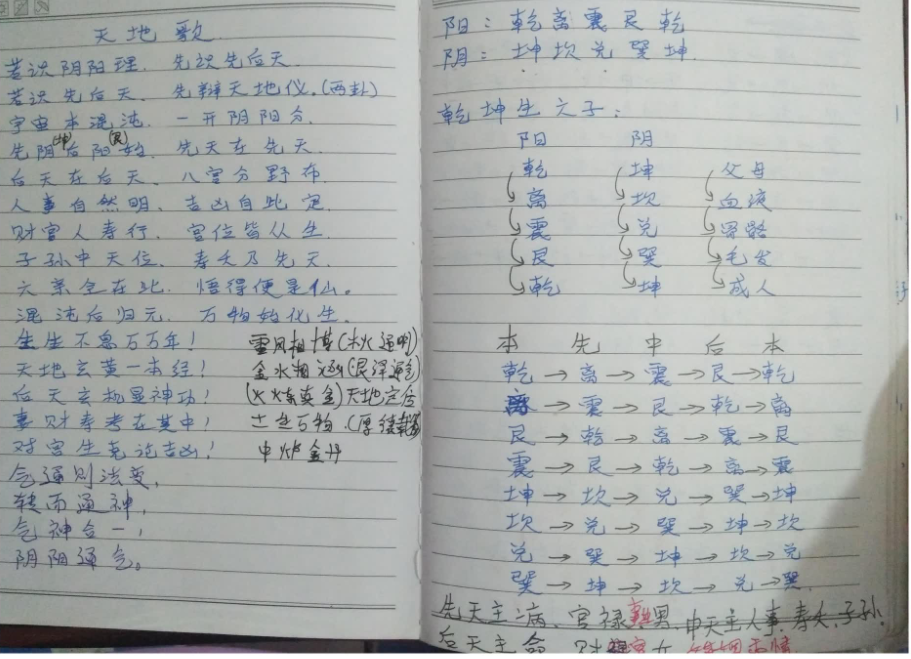 天地歌
若识阴阳理.先识先后天.
若识先后天.先辩天地仪.(两卦)
宇宙本混沌.一开阴阳分.
先阴(坤)后阳(艮)始.先天在先天.
后天在后天.八宫分野布.
人事自然明.吉凶自此定.
财官人寿行.宫位皆从生.
子孙中天位.寿夭乃先天.
六亲全在此.悟得便是仙。
混沌后归元.万物始化生.
生生不息万万年! 雷风相博(木火通明)
天地玄黄一本经! 金水相 (艮泽通气)
后天玄机显神功! (火炼真金)天地定位
妻财寿考在其中! 土生万物.(厚德载物
对宫生克论吉凶! 中炉金丹
气通则法变,
转而通神,
气神合一,
阴阳通气。
阳:乾离震艮乾
阴:坤坎兑巽坤.
乾坤生六子:
阳 阴
乾 坤 父母
离 坎 血液
震 兑 骨骼
艮 巽 毛发
乾 坤 成人
本 先 中 后 本
乾→离→震→艮→乾
离→震→艮→乾→离
艮→乾→离→震→艮
震→艮→乾→离→震
坤→坎→兑→巽→坤
坎→兑→巽→坤→坎
兑→巽→坤→坎→兑
巽→坤→坎→兑→巽
先天主病、官禄 男.中天主人事.寿夭.子孙.
后天主命 财 女